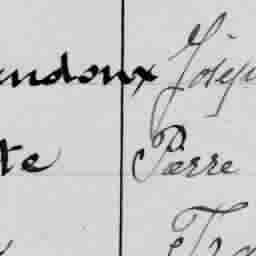 ndoux Joseph
te Pierre